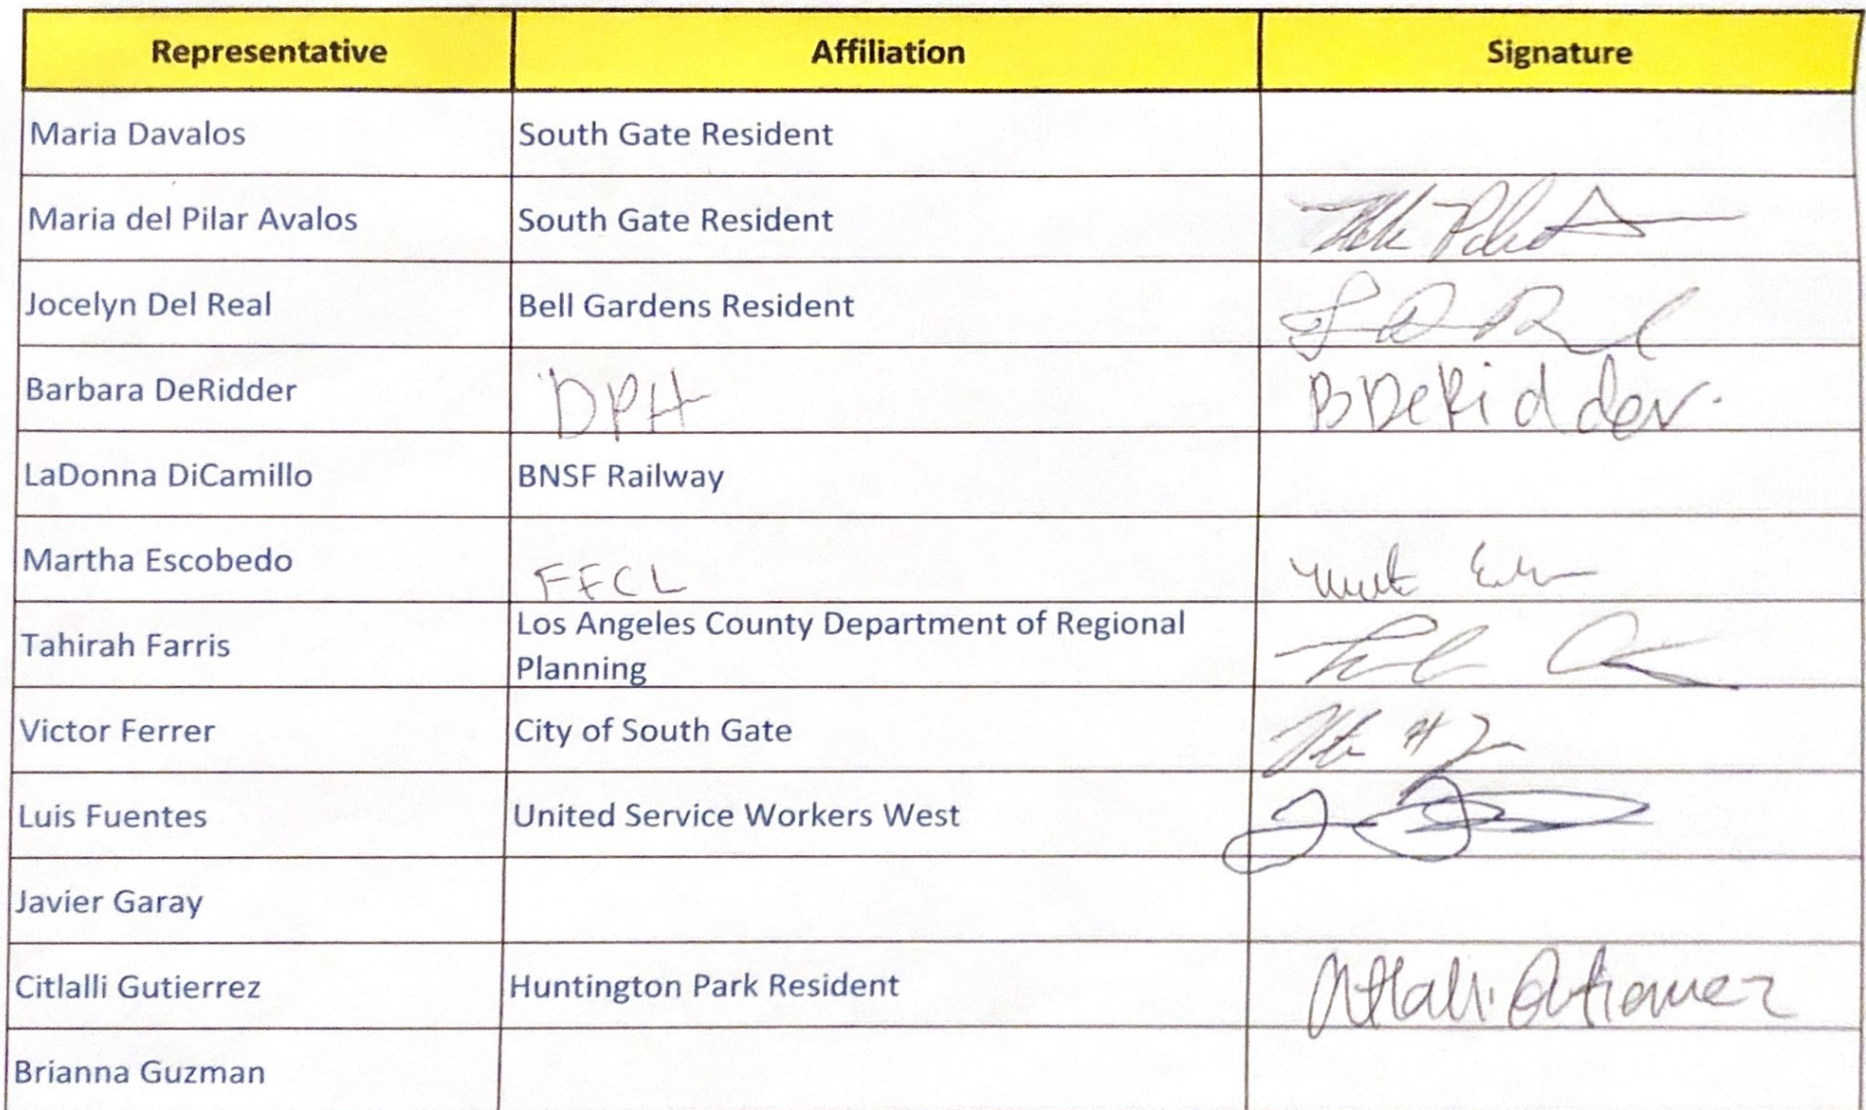 Representative Affiliation Signature
Maria Davalos South Gate Resident
Maria del Pilar Avalos South Gate Resident
Jocelyn Del Real Bell Gardens Resident
Barbara DeRidder DPH B DeRidder.
LaDonna DiCamillo BNSF Railway
Martha Escobedo FFCL
Tahirah Farris Los Angeles County Department of Regional
Planning
Victor Ferrer City of South Gate
Luis Fuentes United Service Workers West
Javier Garay
Citlalli Gutierrez Huntington Park Resident Citlalli Gutierrez
Brianna Guzman